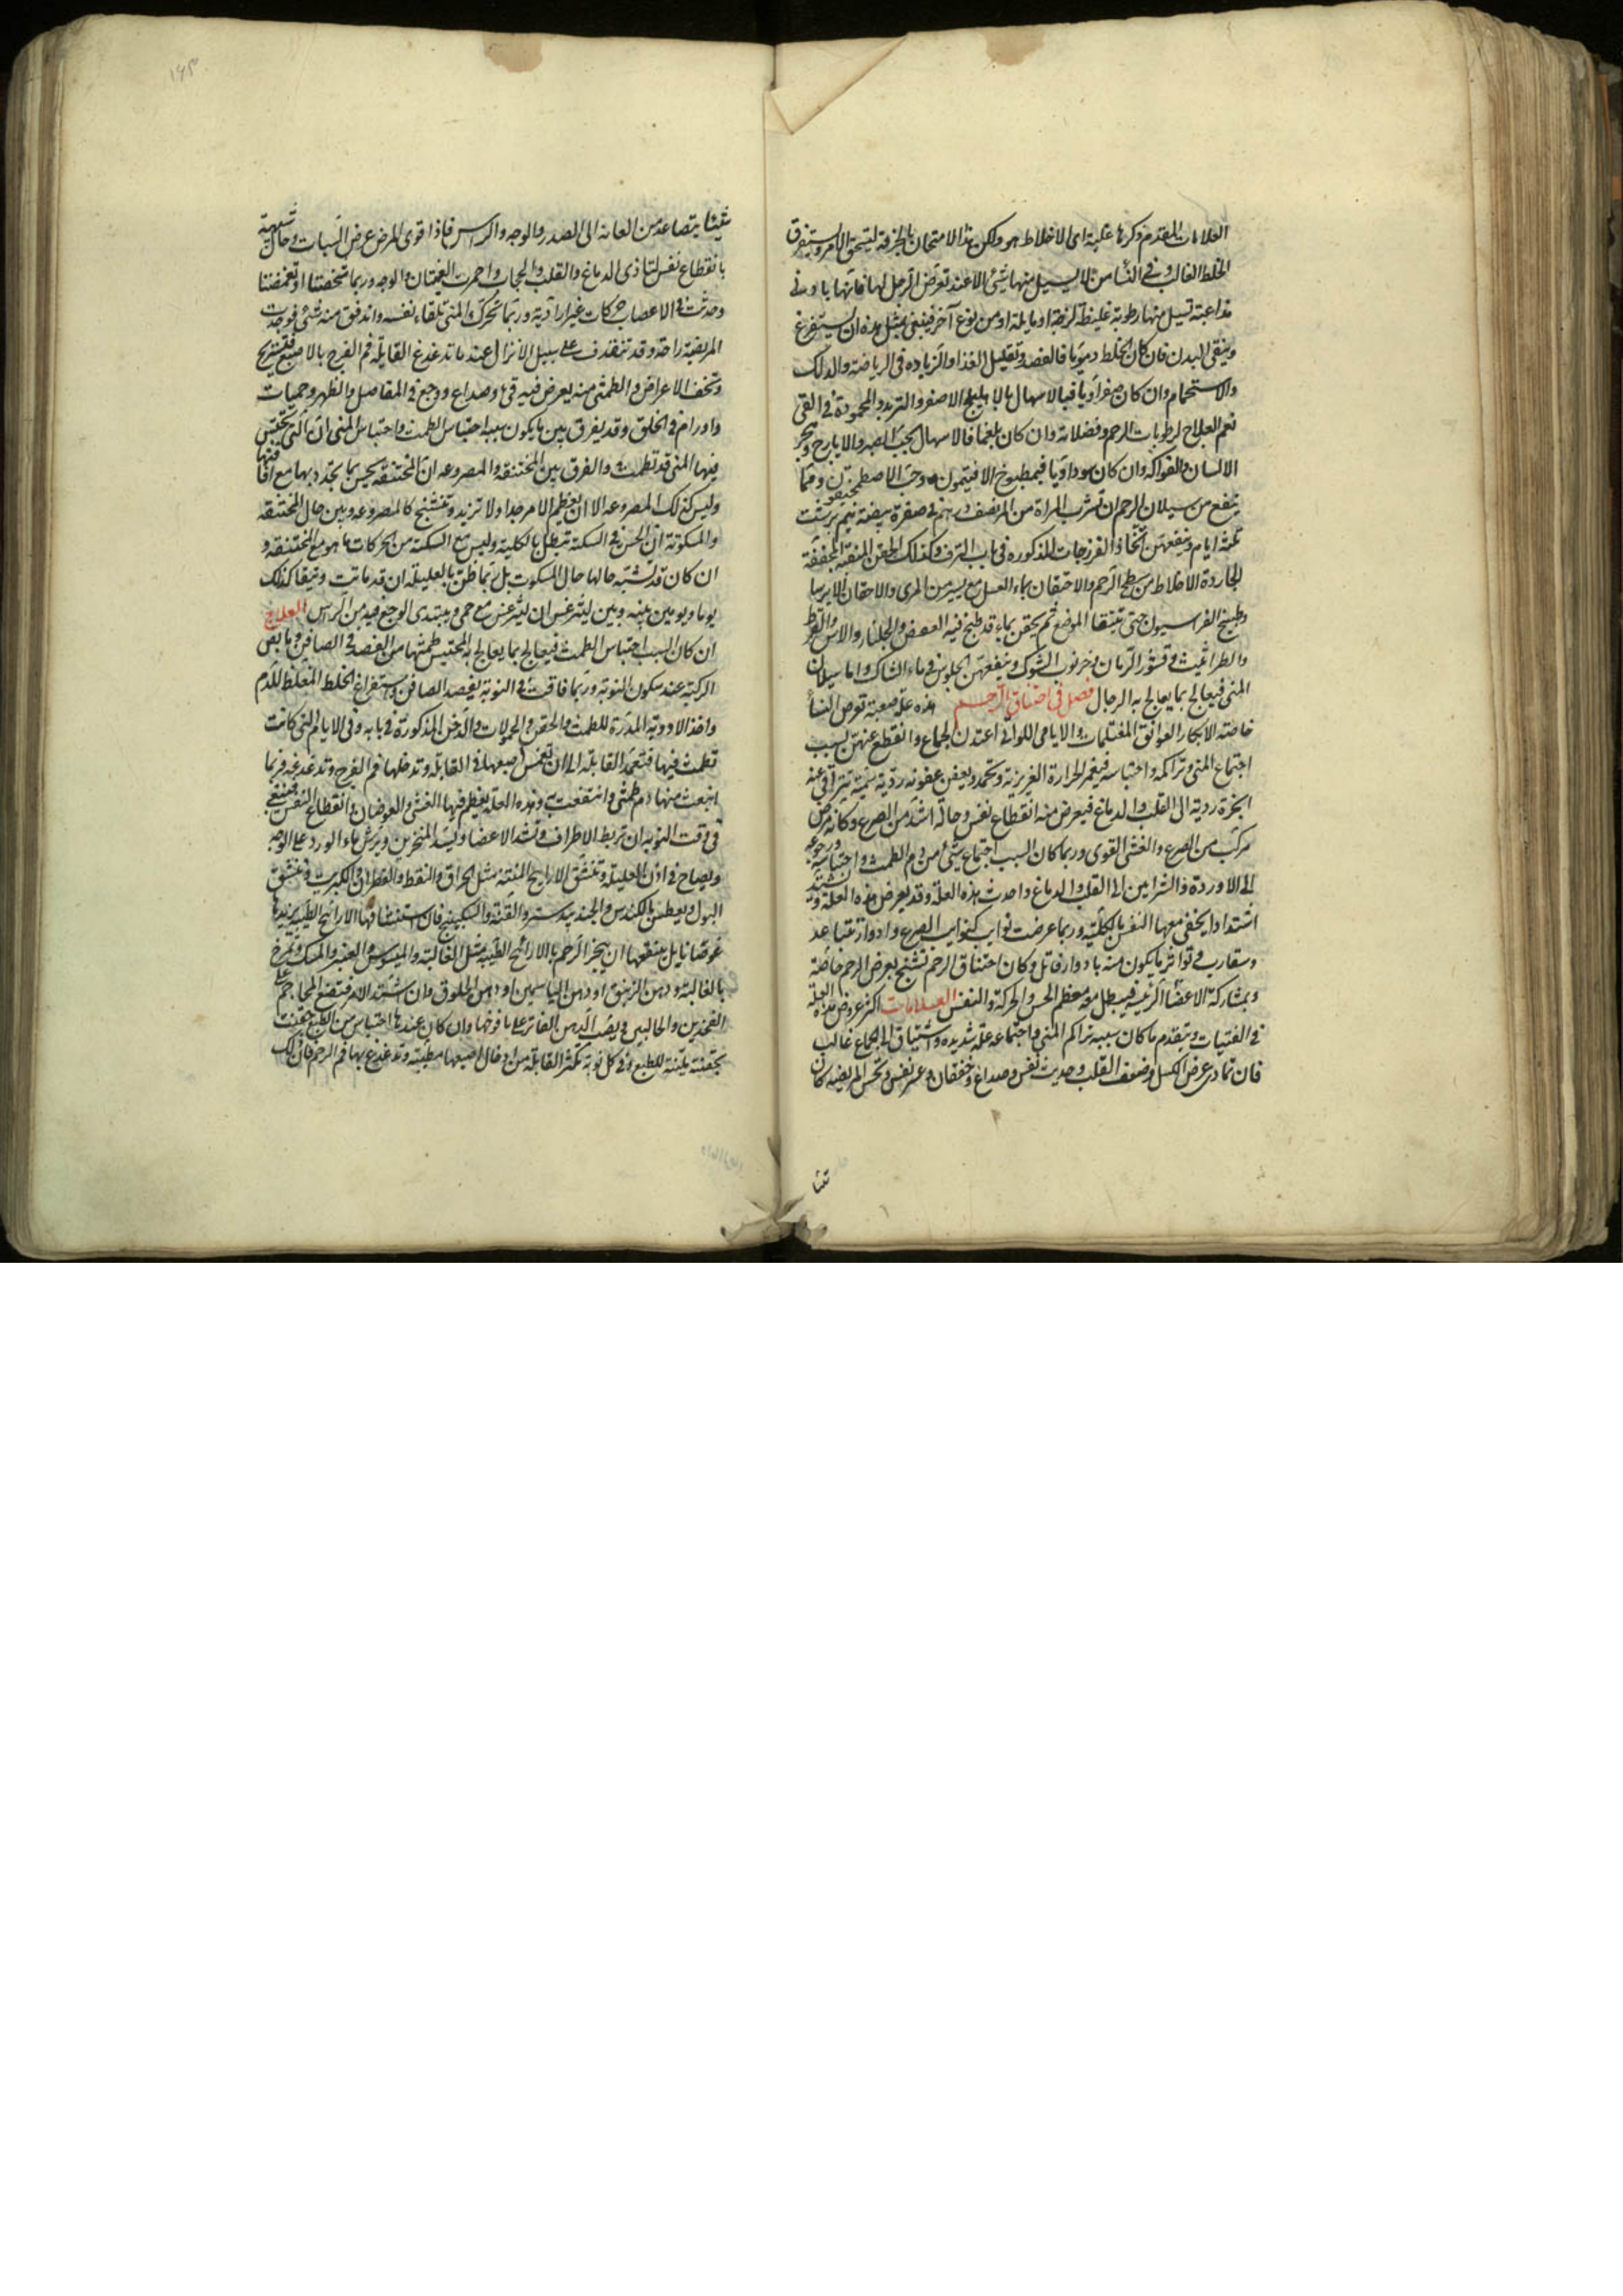 العلامات المتقدم ذكرها غلبة اى الاخلاط هو ولكن هذا الامتحان بالخرقة ليتحقق الامر ويستفرغ
الخلط الغالب وفى النسا من لا يسيل منها شئ الا عند تعرض الرجل لها فانها بادنى
مداعبة تسيل منها رطوبة غليظة لزجة او مايلة او من نوع آخر فينبغى بمثل هذه ان يستفرغ
وينقى البدن فان كان الخلط دمويا فالفصد وتقليل الغذا والزياده فى الرياضة والدلك
والاستحمام وان كان صفراويا فبالاسهال بالاهليلج الاصفر والتربد والمحمودة فى القى
نعم العلاج لرطوبات الرحم وفضلاته وان كان بلغما فالاسهال بحب الصبر والايارج
الالسان والفواكه وان كان سوداويا فبمطبوخ الافتيمون وحب الاصطمخيقون ومما
ينفع من سيلان الرحم ان تشرب المراة من المر نصف درهم فى صفرة بيضة نيم برشت
ثلثة ايام وينفعهن اتخاذ الفرزجات المذكوره فى باب النزف وكذلك الحقن المنقية المجففة
الجاردة الاخلاط من سطح الرحم والاحتقان بماء العسل مع يسير من المرى والاحتقان بالايرسا
وطبيخ الفراسيون حتى تنقا الموضع ثم يحقن بماء قد طبخ فيه العفص والجلنار والاس والقرظ
والطراثيث وقشور الرمان وخرنوب الشوك وينفعهن الجلوس فى ماء الشاك واما سيلان
المنى فيعالج بما يعالج به الرجال فصل فى اختناق الرحم هذه علة صعبة تعرض النسا
خاصة الابكار العواتق المغتلمات والايامى اللواتى اعتدن الجماع وانقطع عنهن بسبب
اجتماع المنى وتراكمه واحتباسه فيغمر الحرارة الغريزية وتخمد ويعفن عفونة ردية سمية تتراقى عنه
ابخرة ردية الى القلب والدماغ فيعرض منه انقطاع نفس وحالة اشد من الصرع وكانه مرض
مركب من الصرع والغشى القوى وربما كان السبب اجتماع شئ من دم الطمث واحتباسه ورجوعه
الى الاوردة والشرايين الى القلب والدماغ واحدث هذه العلة وقد يعرض هذه العلة وتشتد
اشتدادا يخفى معها النفس بالكلية وربما عرضت نوايب كنوايب الصرع وادوار تتباعد
وتتقارب فى تواتر ما يكون منه بادوار قاتل وكان اختناق الرحم تشنج يعرض الرحم خاصة
وبمشاركة الاعضا الرئيسة فيبطل منه معظم الحس والحركة والنفس العلامات اكثر عروض هذه العلة
فى الفتيات ويتقدم ما كان سببه تراكم المنى واجتماعه علة شديده واشتياق الى الجماع غالب
فان تمادى عرض الكسل وضعف القلب وحديث نفس وصداع وخفقان وعسر نفس وتحس المريضه كان
شيئا يتصاعد من العانة الى الصدر والوجه والراس فاذا قوى المرض عرض السبات وحال شبيهة
بانقطاع نفس لتاذى الدماغ والقلب والحجاب واحمرت العينان والوجه وربما شخصتا او تغمضتا
وحدثت فى الاعصاب حركات غير ارادية وربما تحرك المنى تلقاء نفسه واندفق منه شئ فوجدت
المريضة راحة وقد تنقذف على سبيل الانزال عند ما تدغدغ القابلة فم الفرج بالاصبع فتستريح
وتخف الاعراض والطمثى منه يعرض فيه قئ وصداع ووجع فى المفاصل والظهر وحميات
واورام فى الحلق وقد يفرق بين ما يكون سببه احتباس الطمث واحتباس المنى ان التى يحتبس
فيها المنى قد تطمث والفرق بين المختنقة والمصروعه ان المختنقة تحس بما تجد دبها مع افاقتها
وليس كذلك المصروعه الا ان يعظم الامر جدا ولا تزبد وتتشنج كالمصروعه وبين حال المختنقة
والمسكوتة ان الحس فى السكتة تبطل بالكلية وليس مع السكتة من الحركات ما هو مع المختنقة و
ان كان قد تشبه حالها حال المسكوت بل ربما ظن بالعليلة ان قد ماتت وتبقا كذلك
يوما ويومين بينه وبين ليثرغس ان ليثرغس مع حمى ويبتدى الوجع فيه من الراس العلاج
ان كان السبب احتباس الطمث فيعالج بما يعالج به المحتبس طمثها من الفصد فى الصافن ومابض
الركبة عند سكون النوبة وربما فاقت فى النوبة بفصد الصافن واستفراغ الخلط المغلظ للدم
واخذ الادوية المدرة للطمث والحقن والحمولات والدخن المذكورة فى بابه وفى الايام التى كانت
تطمث فيها فتتعمد القابلة الى ان تغمس اصبعها فى القابلة وتدخلها فم الفرج وتدغدغه فربما
انبعث منها دم طمثى وانتفعت به وهذه العلة يعظم فيها الغشى والعرضان وانقطاع النفس فينبغى
فى وقت النوبة ان تربط الاطراف وتشد الاعضا ويسد المنخرين ويرش ماء الورد على الوجه
ويصاح فى اذن العليلة وتنشق الارايح المنتنة مثل الحراق والنفط والقطران والكبريت وتنشق
البول ويعطس بالكندس والجندبيدستر والقنة والسكبينج فان استنشاقها الارائح الطيبة يزيدها
غوصا نايل ينفعها ان يبخر الرحم بالارائح الطيبة مثل الغالية والميسوسن والعنبر والمسك وتمرخ
بالغالية ودهن الزنبق او دهن الياسمين او دهن الخلوق وان اشتد الامر فتضع المحاجم على
الفخذين والحالبين ويصب الدهن الفاتر على يافوخها وان كان عندها احتباس من الطبع حقنت
بحقنة ملينة للطبع وفى كل نوبة تكثر القابلة من ادخال اصبعها مطيبة وتدغدغ بها فم الرحم فان ذلك